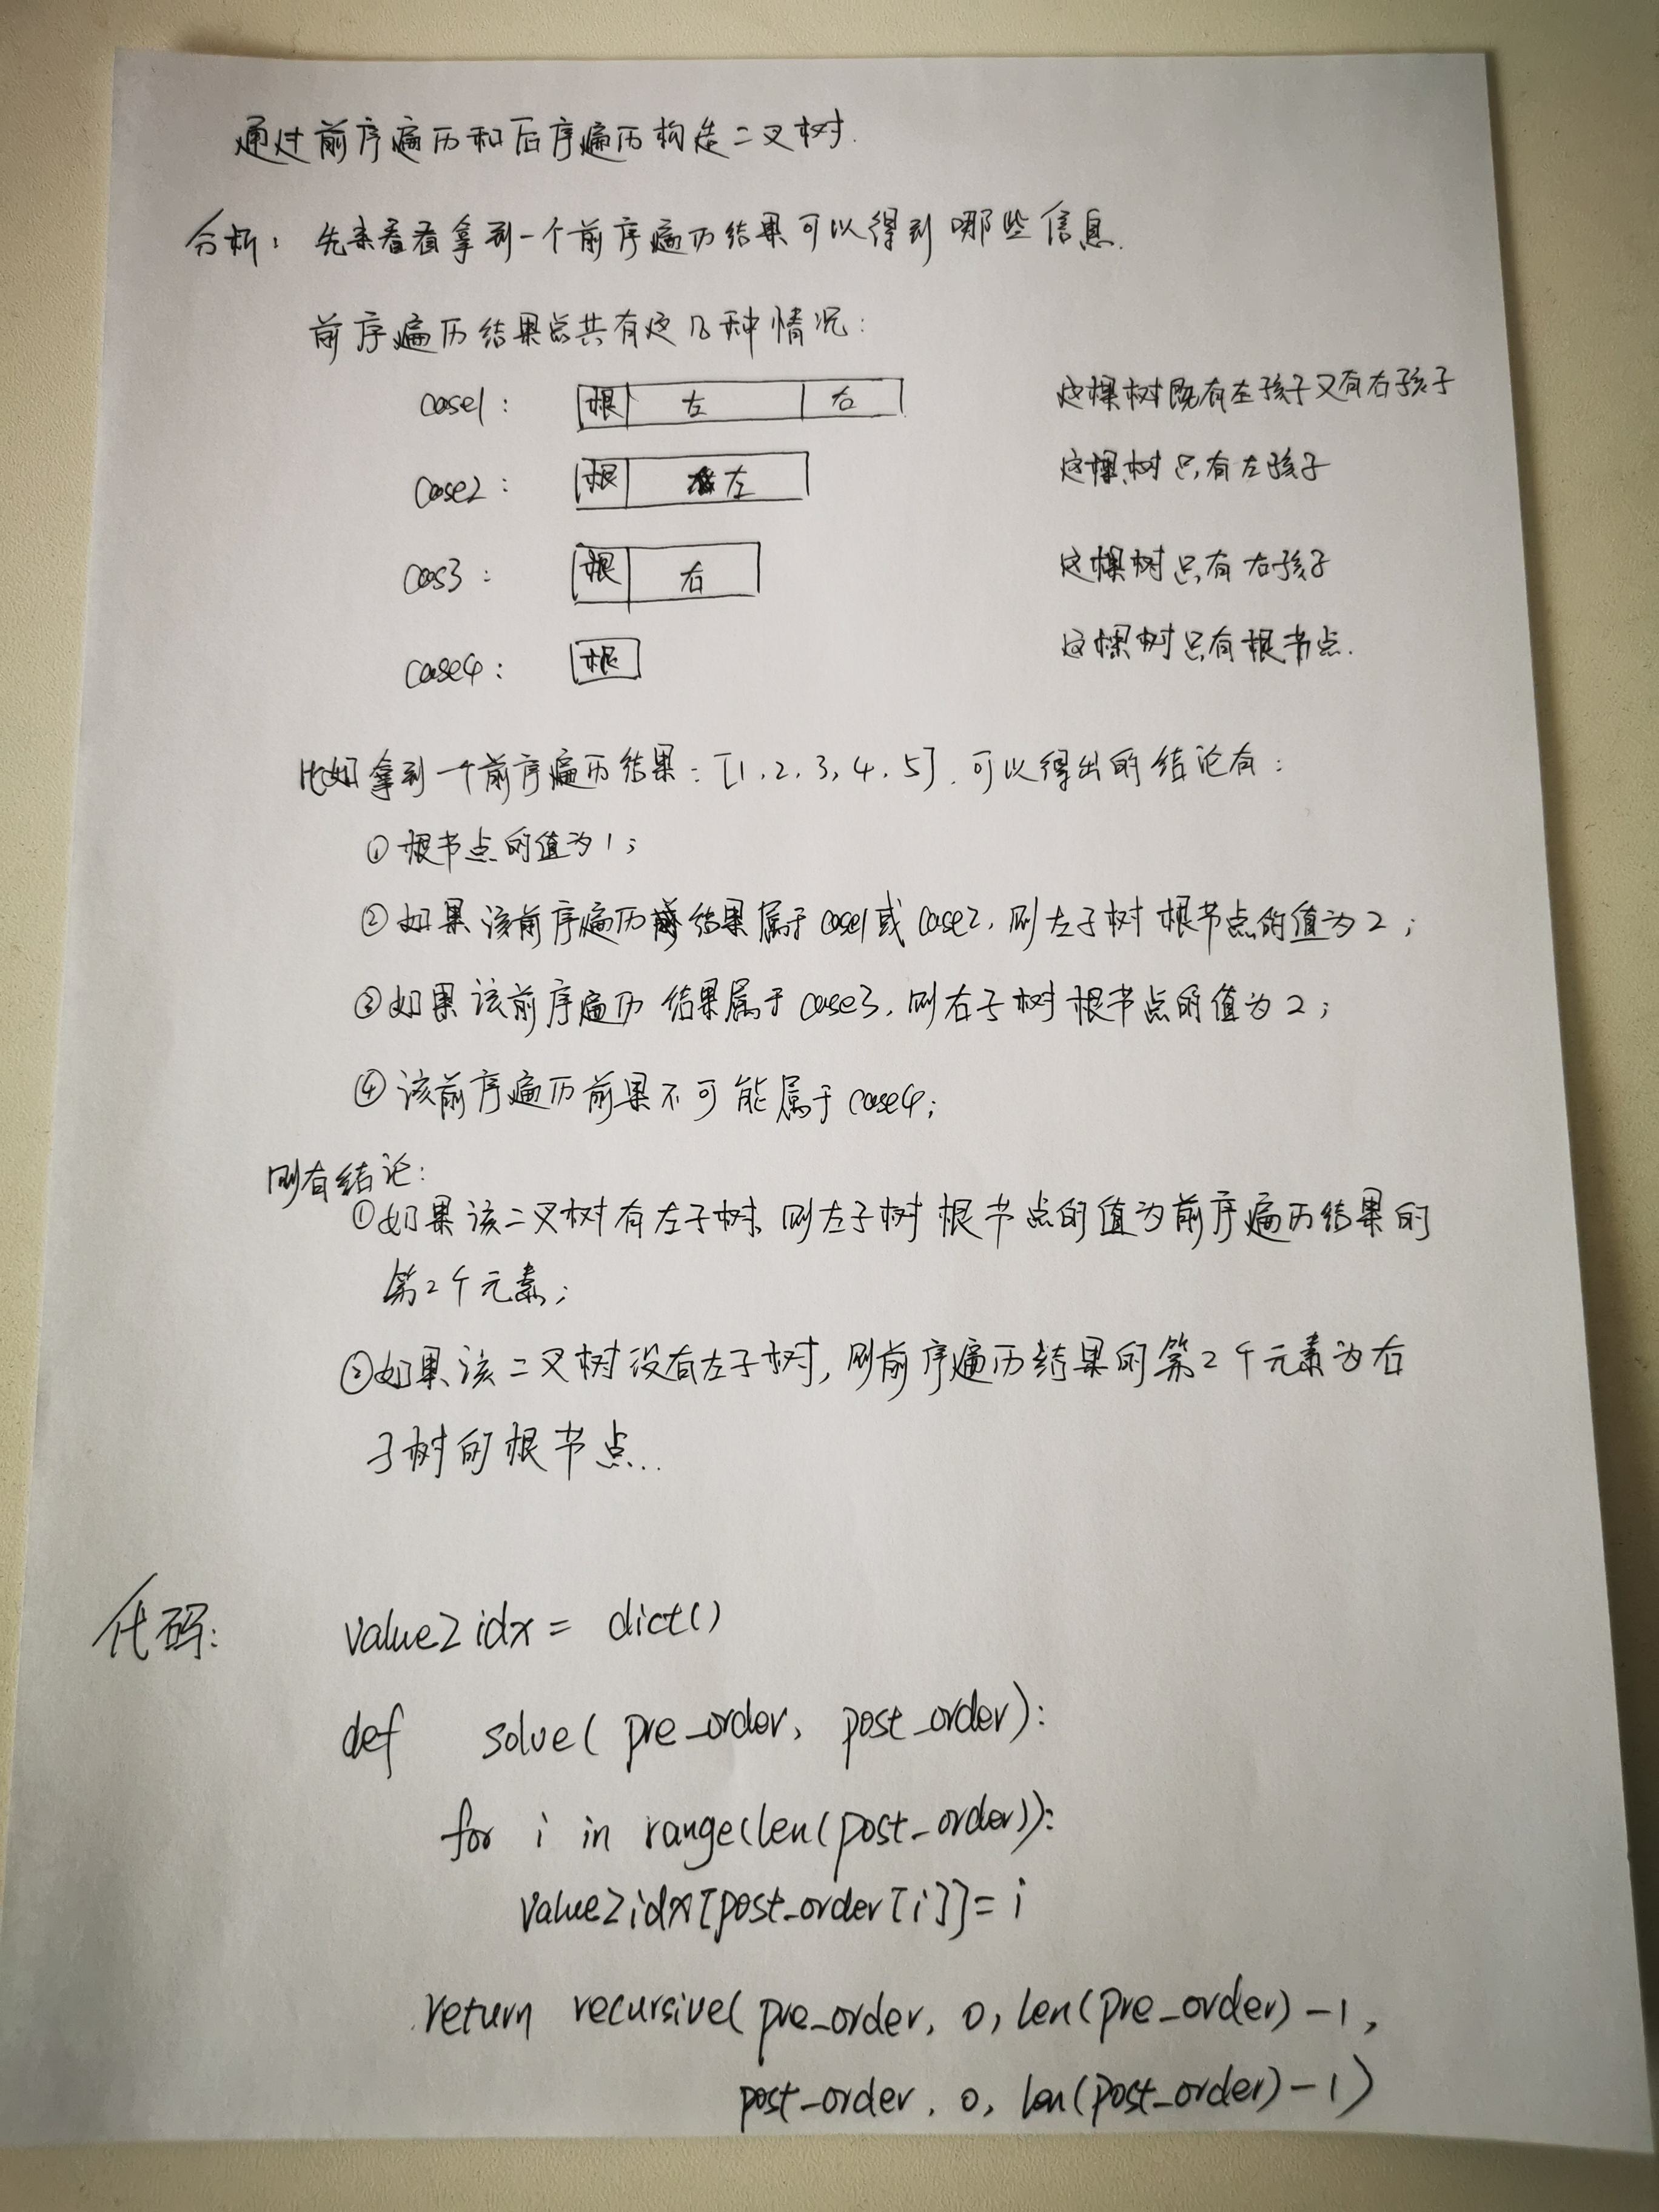 通过前序遍历和后序遍历构造二叉树.
分析: 先来看看拿到一个前序遍历结果可以得到哪些信息.
前序遍历结果总共有这几种情况:
case1: 根 左 右 这棵树既有左孩子又有右孩子
case2: 根 左 这棵树只有左孩子
cas3: 根 右 这棵树只有右孩子
case4: 根 这棵树只有根节点.
比如拿到一个前序遍历结果: [1, 2, 3, 4, 5], 可以得出的结论有:
① 根节点的值为1;
② 如果该前序遍历结果属于case1或case2, 则左子树根节点的值为2;
③ 如果该前序遍历结果属于case3, 则右子树根节点的值为2;
④ 该前序遍历前果不可能属于case4;
则有结论:
① 如果该二叉树有左子树, 则左子树根节点的值为前序遍历结果的
第2个元素;
② 如果该二叉树没有左子树, 则前序遍历结果的第2个元素为右
子树的根节点..
代码: value2idx = dict()
def solve(pre_order, post_order):
for i in range(len(post_order)):
value2idx[post_order[i]] = i
return recursive(pre_order, 0, len(pre_order)-1,
post_order, 0, len(post_order)-1)